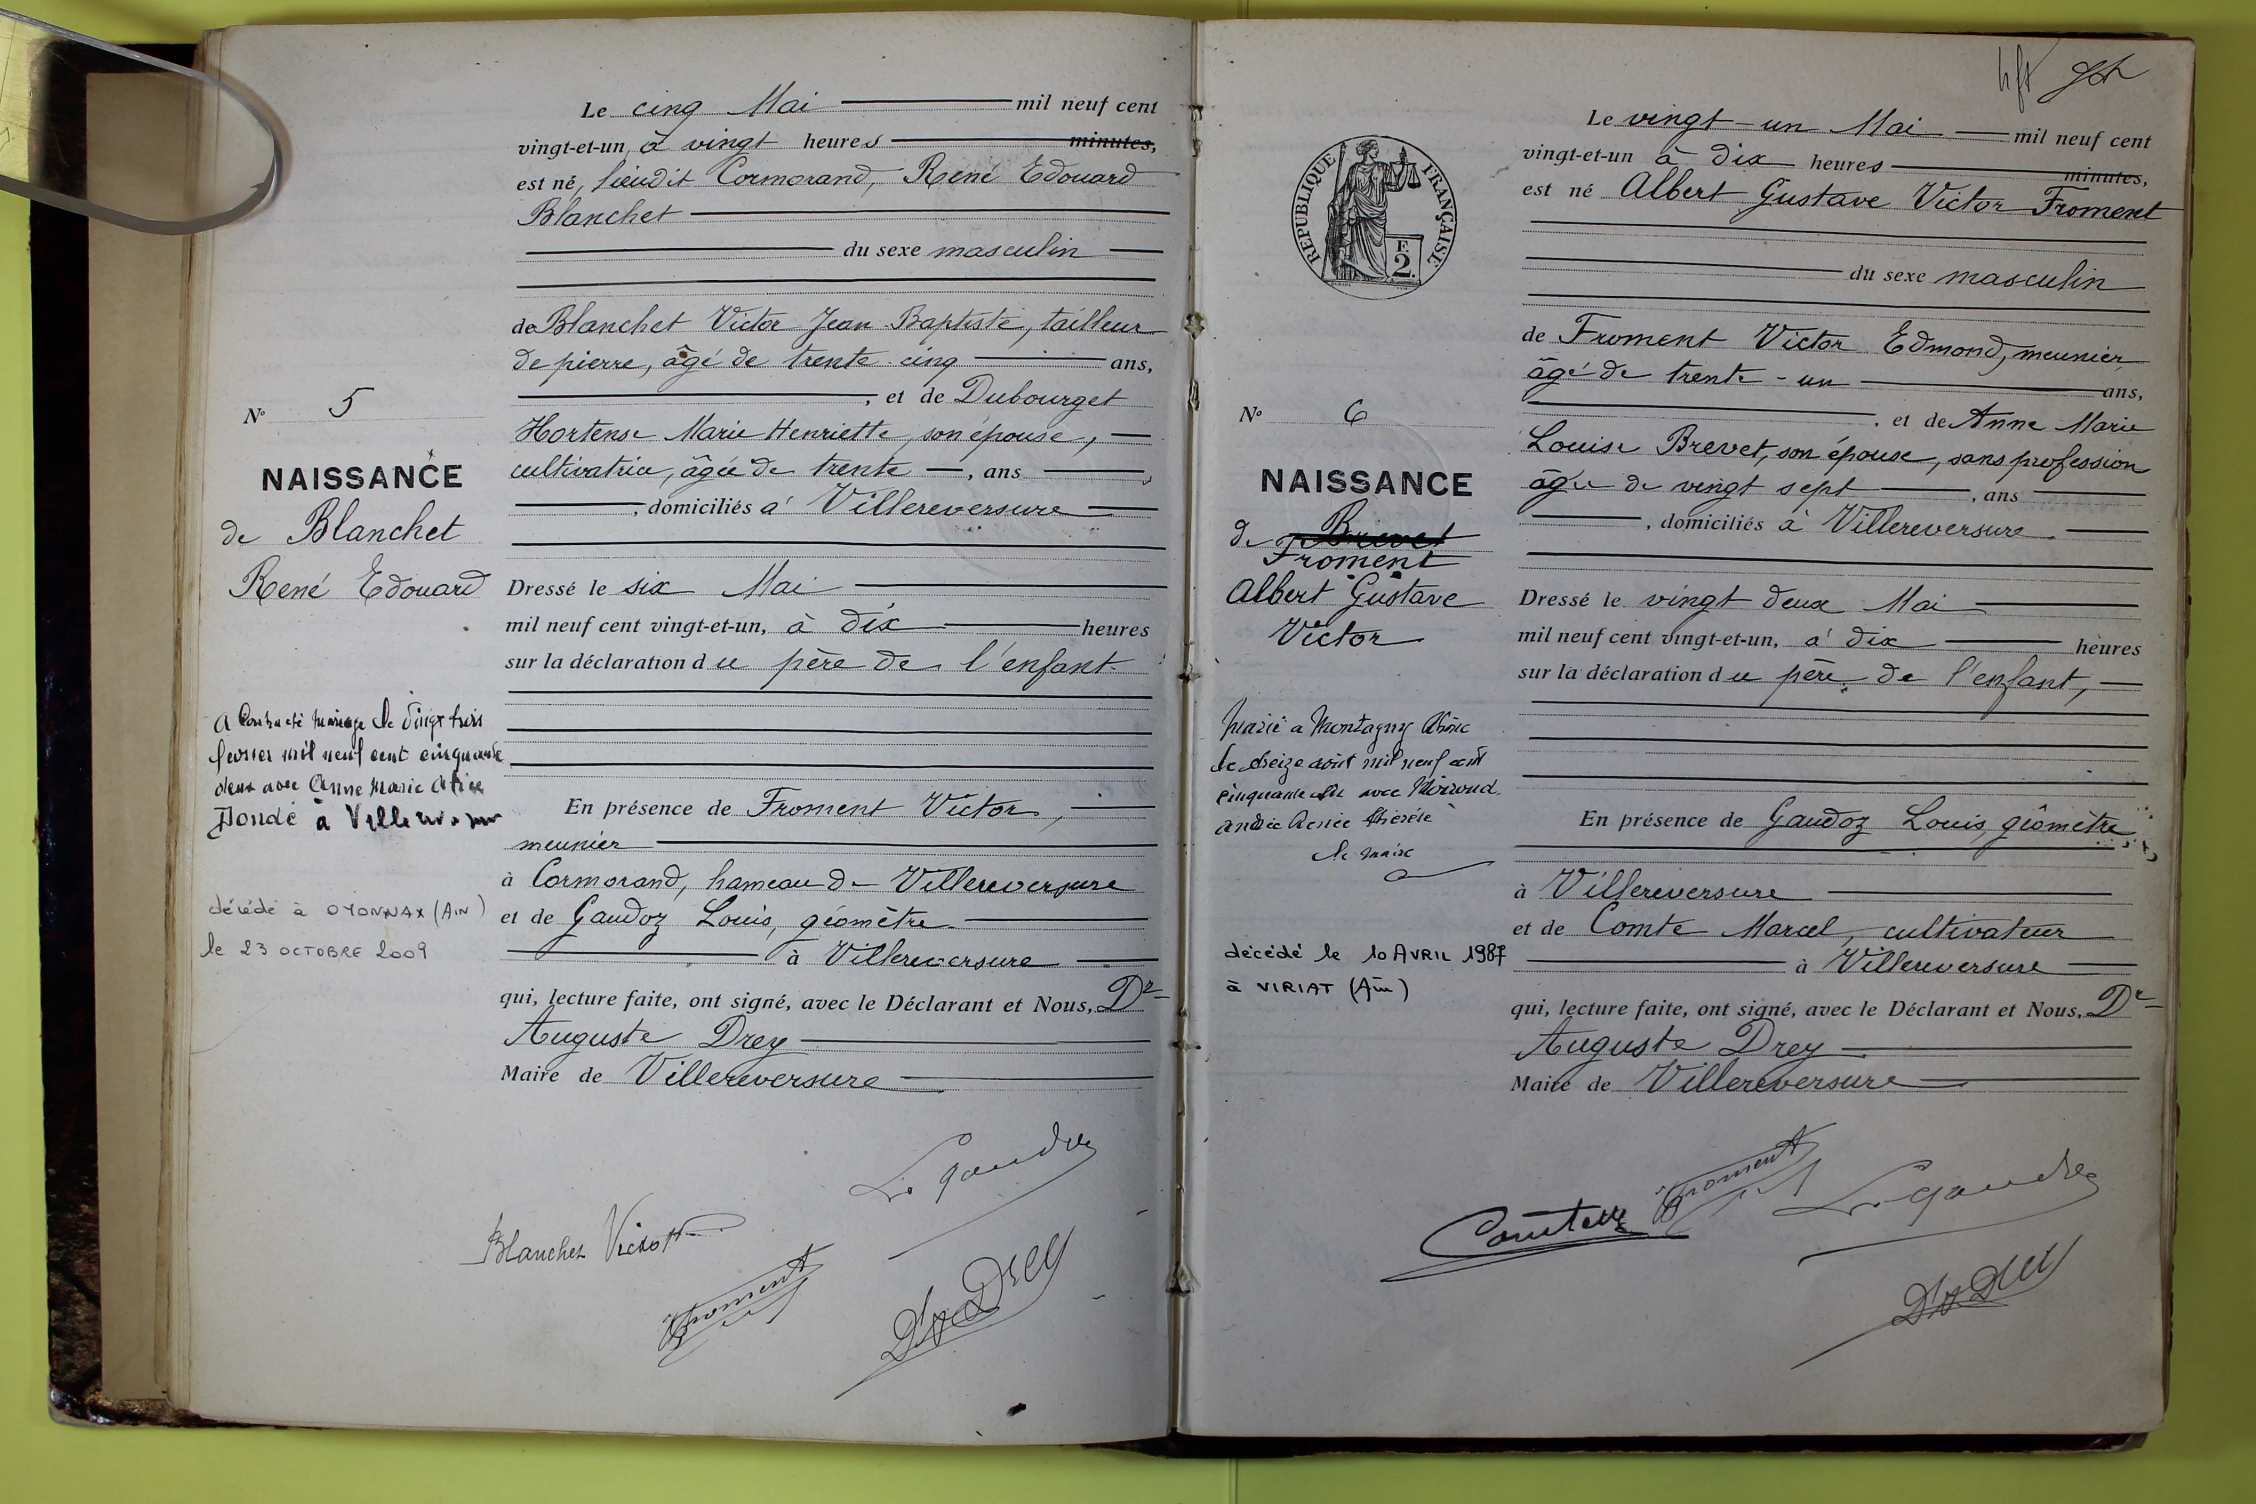 Le cinq Mai mil neuf cent
vingt-et-un, à vingt heures minutes,
est né, lieudit Cormorand, René Edouard
Blanchet
du sexe masculin
de Blanchet Victor Jean-Baptiste, tailleur
de pierre, âgé de trente-cinq ans,
, et de Dubourget
Hortense Marie Henriette, son épouse,
cultivatrice, âgée de trente, ans
, domiciliés à Villereversure
Dressé le six Mai
mil neuf cent vingt-et-un, à dix heures
sur la déclaration du père de l'enfant
En présence de Froment Victor,
meunier
à Cormorand, hameau de Villereversure
et de Gaudoz Louis, géomètre
à Villereversure
qui, lecture faite, ont signé, avec le Déclarant et Nous, Dr
Auguste Drey
Maire de Villereversure
L. Gaudoz
Blanchet Victor
Froment
Dr Drey
N° 5
NAISSANCE
de Blanchet
René Edouard
a Contracté mariage le vingt trois
février mil neuf cent cinquante
deux avec Anne Marie
à Villereversure
décédé à OYONNAX (AIN)
le 23 OCTOBRE 2009
RÉPUBLIQUE FRANÇAISE
F.
2.
Le vingt-un Mai mil neuf cent
vingt-et-un à dix heures minutes,
est né Albert Gustave Victor Froment
du sexe masculin
de Froment Victor Edmond, meunier,
âgé de trente-un ans,
, et de Anne Marie
Louise Brevet, son épouse, sans profession
âgée de vingt sept, ans
, domiciliés à Villereversure
Dressé le vingt deux Mai
mil neuf cent vingt-et-un, à dix heures
sur la déclaration du père de l'enfant,
En présence de Gaudoz Louis, géomètre
à Villereversure
et de Comte Marcel, cultivateur
à Villereversure
qui, lecture faite, ont signé, avec le Déclarant et Nous, Dr
Auguste Drey
Maire de Villereversure
Froment
L. Gaudoz
Comte
Dr Drey
N° 6
NAISSANCE
de Brevet
Froment
Albert Gustave
Victor
Marié à Montagny Rhône
le août mil neuf cent
cinquante avec
Thérèse
le maire
décédé le 10 AVRIL 1987
à VIRIAT (Ain)